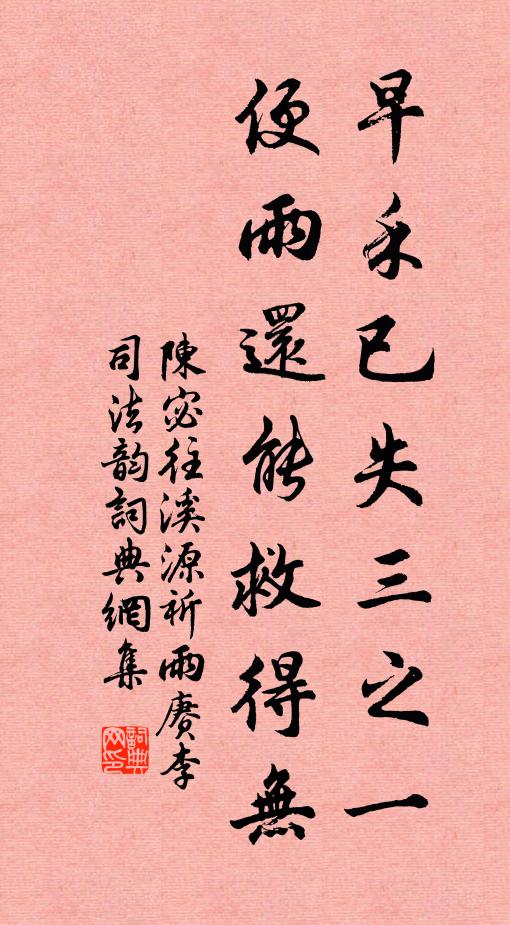 早禾已失三之一
便雨還能救得無
陳宓往溪源祈雨賡李
司法韵詞典網集
詞典网印